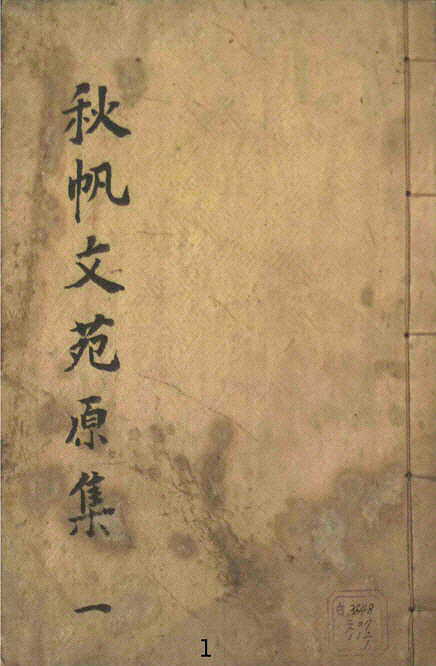 秋帆文苑原集 一
1